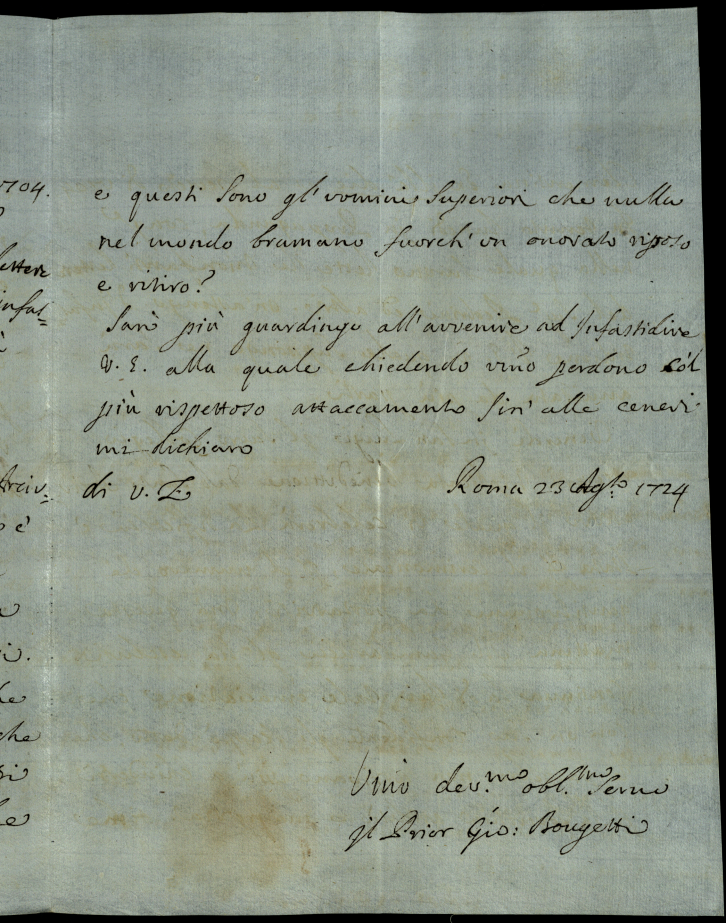 1704.
e questi sono gl' uomini superiori che nulla
nel mondo bramano fuorch' un onorato riposo
lettere
e ritiro?
infas=
Sarò più guardingo all'avvenire ad Infastidire
V. E. alla quale chiedendo perdono col
più rispettoso attaccamento sin' alle ceneri
mi dichiaro
Arciv.
di V. E. Roma 23 Ag.to 1724
è
che
Umo dev.mo obl.mo Servo
jl Prior Gio: Bougetti